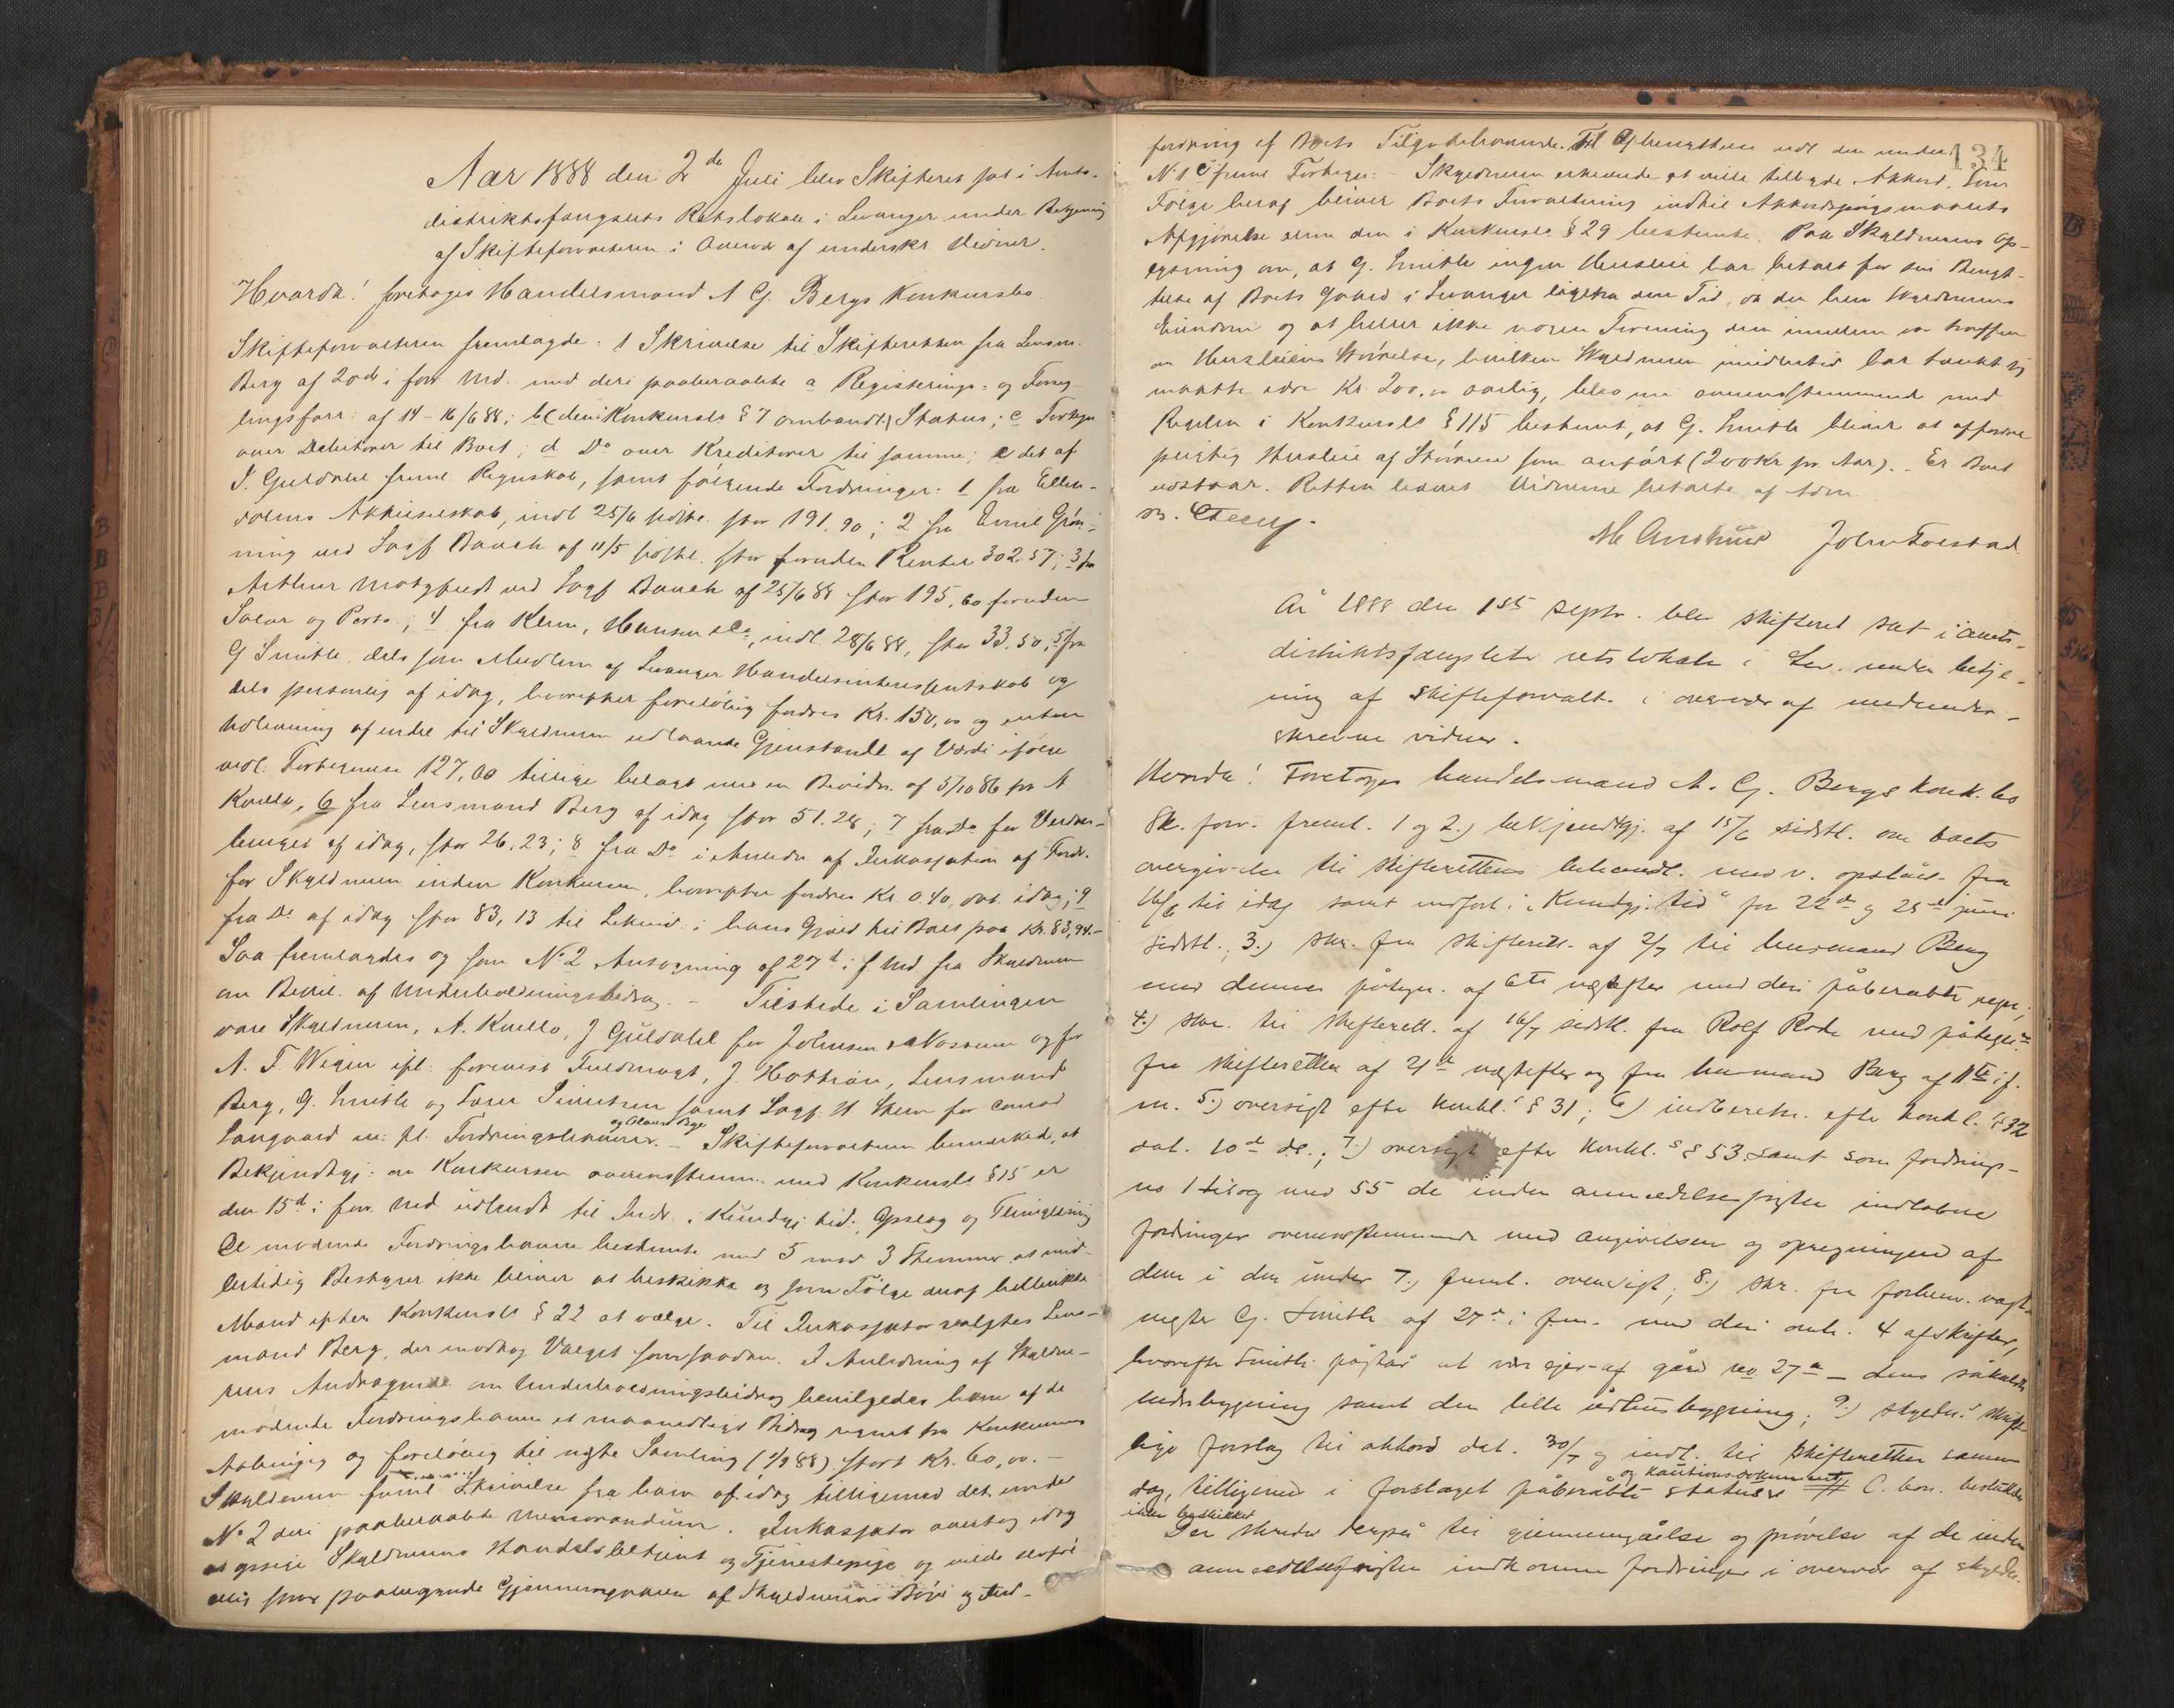 Aar 1888 den 2de Juli blev Skifteret sat i Amts-
distriktsfængslets Retslokale i Levanger under Betjening
af Skifteforvalteren i Overvær af underskr. Vidner.
Hvorda! foretages Handelsmand A G. Bergs Konkursbo
Skifteforvalteren fremlagde: 1 Skrivelse til Skifteretten fra Lensm.
Berg af 20de i forr. Md. med deri paaberaabte a Registerings- og Forseg-
lingsforr: af 14-16/6 88; b (den i Konkursls § 7 omhandl.) Status; c Fortegn
over Debitorer til Boet; d Do over Kreditorer til samme; e det af
J. Guldahl freml. Regnskab, samt følgende Fordringer: 1 fra Ellen-
dolens Aktieselskab, indl 25/6 sidstl. stor 191.90; 2 fra Emil Grøn-
ning ved Sagf Bauch af 11/5 sidstl. stor foruden Renter 302.57; 3 fra
Arthur Motzfeldt ved Sagf Bauch af 25/6 88 stor 195,60 foruden
Salær og Porto; 4 fra Klem, Hansen & Co, indl. 28/6 88, stor 33.50; 5 fra
G Smith dels som Medlem af Levanger Handelsinteressentskab og
dels personlig af idag, hvorefter foreløbig fordres Kr. 150,00 og enten
Udlevering af endel til Skyldneren udlaante Gjenstande af Værdi ifølge
vedl. Fortegnelse 127,00 tillige belagt med en Bevidn. af 5/10 86 fra A
Kvello, 6 fra Lensmand Berg af idag stor 51.28; 7 fra Do for Verdens-
bruget af idag, stor 26.23; 8 fra Do i Anledn af Inkassation af Fordr.
for Skyldneren inden Konkursen, hvorefter fordres Kr. 0.40, dat. idag; 9
fra Do af idag stor 83,13 til Lekvid. i hans Gjæld til Boet paa Kr. 83,94.-
Saa fremlagdes og som No 2 Ansøgning af 27d i f. Md fra Skyldneren
om Bevil. af Underholdningsbidrag. - Tilstede i Samlingen
vare Skyldneren, A. Kvello, J Guldahl for Johnsen & Nossum og for
A. F. Wigen ifl. forevist Fuldmagt, J. Hottran, Lensmand
Berg, G. Smith og Lars Simensen samt Sagf. U Skem for Conrad
og Claus Bye
Langaard m: fl. Fordringshavere. - Skifteforvalteren bemærkede, at
Bekjendtgj. om Konkursen overensstemm. med Konkursls § 15 er
den 15d i forr. Md udsendt til Indr. i Kundgj tid; Opslag og Thinglæsning
De mødende Fordringshavere bestemte med 5 mod 3 Stemmer at mid-
lertidig Bestyrer ikke bliver at beskikke og som Følge deraf heller ikke
Mand efter Konkursls § 22 at vælge. Til Inkassator valgtes Lens-
mand Berg, der modtog Valget som saadan. I Anledning af Skyldne-
rens Andragende om Underholdningsbidrag bevilgedes ham af de
mødende Fordringshavere et maanedligt Bidrag regnet fra Konkursens
Aabning og foreløbig til næste Samling (1/9 88) stort Kr. 60,00. -
Skyldneren freml. Skrivelse fra ham af idag tilligemed det under
No 2 deri paaberaabte Memorandum. Inkassator overtog idag
at opsige Skyldnerens Handelsbetjent og Tjenestepige og vilde derfor
paaliggende Gjennemgaaelse af Skyldnerens Bøger og Ind-
134
fordring af Boets Tilgodehavende. Til Afbenyttelse udl den under
No 1 c freml Fortegn: - Skyldneren erklærede at ville tilbyde Akkord. Som
Følge heraf bliver Boets Forvaltning indtil Akkordspørgsmaalets
Afgjørelse alene den i Konkursls § 29 bestemte. Paa Skyldnerens Op-
lysning om, at G. Smith ingen Husleie har betalt for sin Benyt-
telse af Boets Gaard i Levanger siden den Tid, da den blev Skyldnerens
Eiendom og at heller ikke nogen Forening dem imellem var truffen
om Husleiens Størrelse, hvilken Skyldneren imidlertid har tænkt sig
maatte være Kr. 200,00 aarlig, blev nu overensstemmende med
Reglen i Konkursls § 115 bestemt, at G. Smith bliver at affordre
pligtig Husleie af Størrelse som anført (200 Kr pr. Aar). - Er Boet
udstaar. Retten hævet. Vidnerne betalte af Adm
John Tolstad
År 1888 den 1ste septr. blev skifteret sat i amts-
distriktsfængslets retslokale i Lev. under betje-
ning af skifteforvalt. i overvær af medunder-
skrevne vidner.
Hvorda! Foretoges handelsmand A. G. Bergs konk.bo
Sk. forv. freml. 1 og 2.) bekjendtgj. af 15/6 sidstl. om boets
overgivelse til skifterettens behandl. med v. opslået fra
16/6 til idag samt indført i "Kundgj. tid" for 22de og 25de juni
sidstl., 3.) skr. fra skifterett. af 2/7 til lensmand Berg
med dennes påtegn. af 6te næstefter med deri påberåbte regn;
4.) skr. til skifterett. af 16/7 sidstl. fra Rolf Rode med påtegn:
fra skifteretten af 21de næstefter og fra lensmand Berg af 11te i f.
m. 5.) oversigt efter konkl.s § 31; 6) indberetn. efter konkl.s § 32
dat. 10de ds.; 7.) oversigt efter konkl.s § 53 samt som fordrings-
no 1 til og med 55 de inden anmeldelsesfristen indløbne
fordringer overensstemmende med angivelsen og opregningen af
dem i den under 7.) freml. oversigt; 8.) skr. fra forhenv. vagt-
mester G. Smith af 27de i f.m. med deri omh. 4 afskrifter,
hvorefter Smith påstår at være ejer af gård no 27a - dens såkaldte
nedrebygning samt den lille udhusbygning; 9.) skyldn.s skrift-
lige forslag til akkord dat. 30/7 og indl. til skifteretten samme
og kautionsdokument
dag, tilligemed i forslaget påberåbte status # C. bon. bestikkes
ikke beskikket
Der skredes derpå til gjennemgåelse og prøvelse af de inden
anmeldelsesfristen indkomne fordringer i overvær af skyldn.